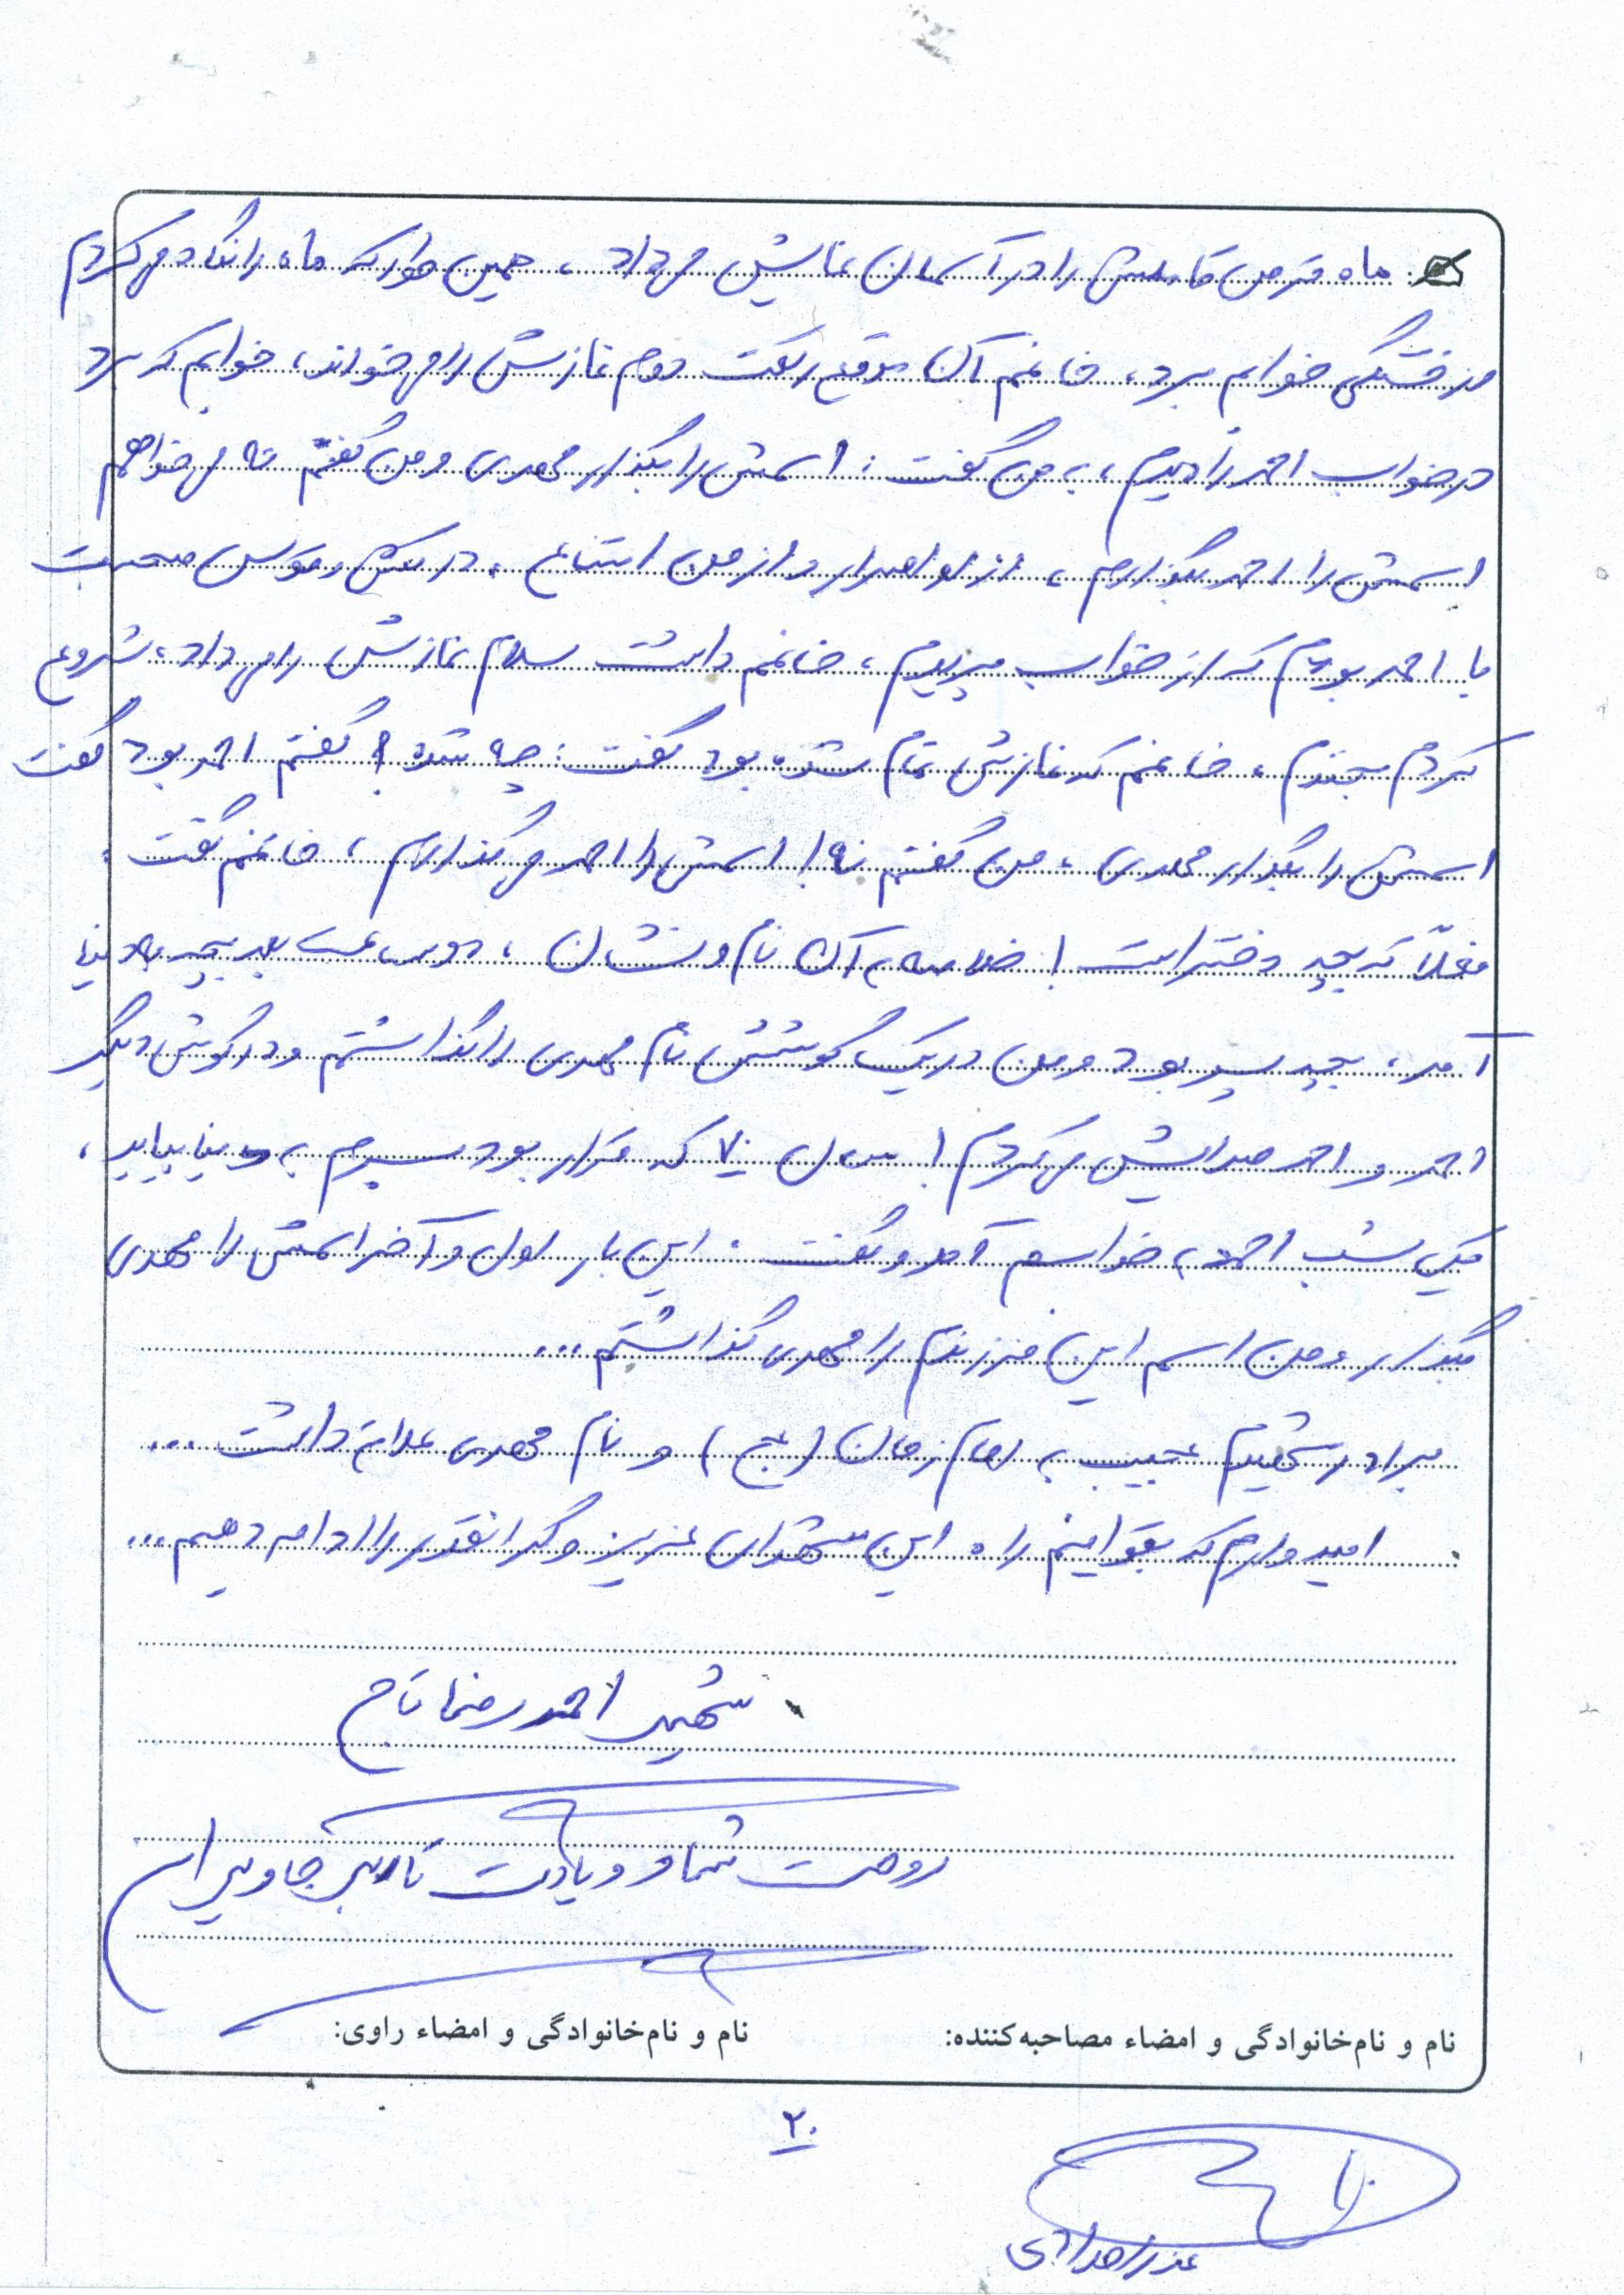 ماه قرص کاملش را در آسمان نمایش می داد ، همین طور که ماه را نگاه می کردم
از خستگی خوابم برد ، خانمم آن موقع رکعت دوم نمازش را می خواند ، خوابم که برد
در خواب احمد را دیدم ، به من گفت : اسمش را بگذار مهدی و من گفتم نه می خواهم
اسمش را احمد بگذارم ، از او اصرار و از من امتناع ، در کش و قوس صحبت
با احمد بودم که از خواب پریدم ، خانمم داشت سلام نمازش را می داد ، شروع
کردم بخندم ، خانمم که نمازش تمام شده بود گفت : چه شده ؟ گفتم احمد بود گفت
اسمش را بگذار مهدی ، من گفتم نه ! اسمش را احمد می گذارم ، خانمم گفت :
فعلاً که بچه دختر است ! خلاصه به آن نام و نشان ، دو ساعت بعد بچه به دنیا
آمد ، بچه پسر بود و من در یک گوشش نام مهدی را گذاشتم و در گوش دیگر
احمد و احمد صدایش می کردم ! سال ۷۰ که قرار بود پسرم به دنیا بیاید ،
یک شب احمد به خوابم آمد و گفت : این بار اول و آخر اسمش را مهدی
بگذار و من اسم این فرزندم را مهدی گذاشتم ...
برادر شهیدم عجیب به امام زمان (عج) و نام مهدی علاقه داشت ...
امیدوارم که بتوانیم راه این شهدای عزیز و گرانقدر را ادامه دهیم ...
شهید احمدرضا تاج
روحت شاد و یادت تا ابد جاویدان
نام و نام‌خانوادگی و امضاء مصاحبه‌کننده:
نام و نام‌خانوادگی و امضاء راوی:
۲۰
عذرا